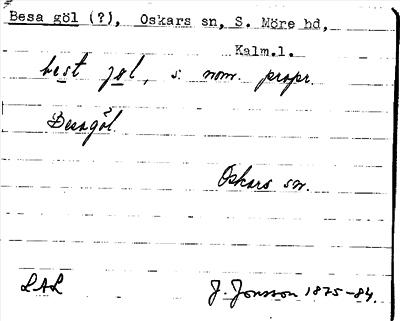 Besa göl (?), Oskars sn, S. Möre hd,
Kalm.l.
best jøl, s. nom. propr.
Besagöl.
Oskars sn.
LAL J. Jonsson 1875-84.